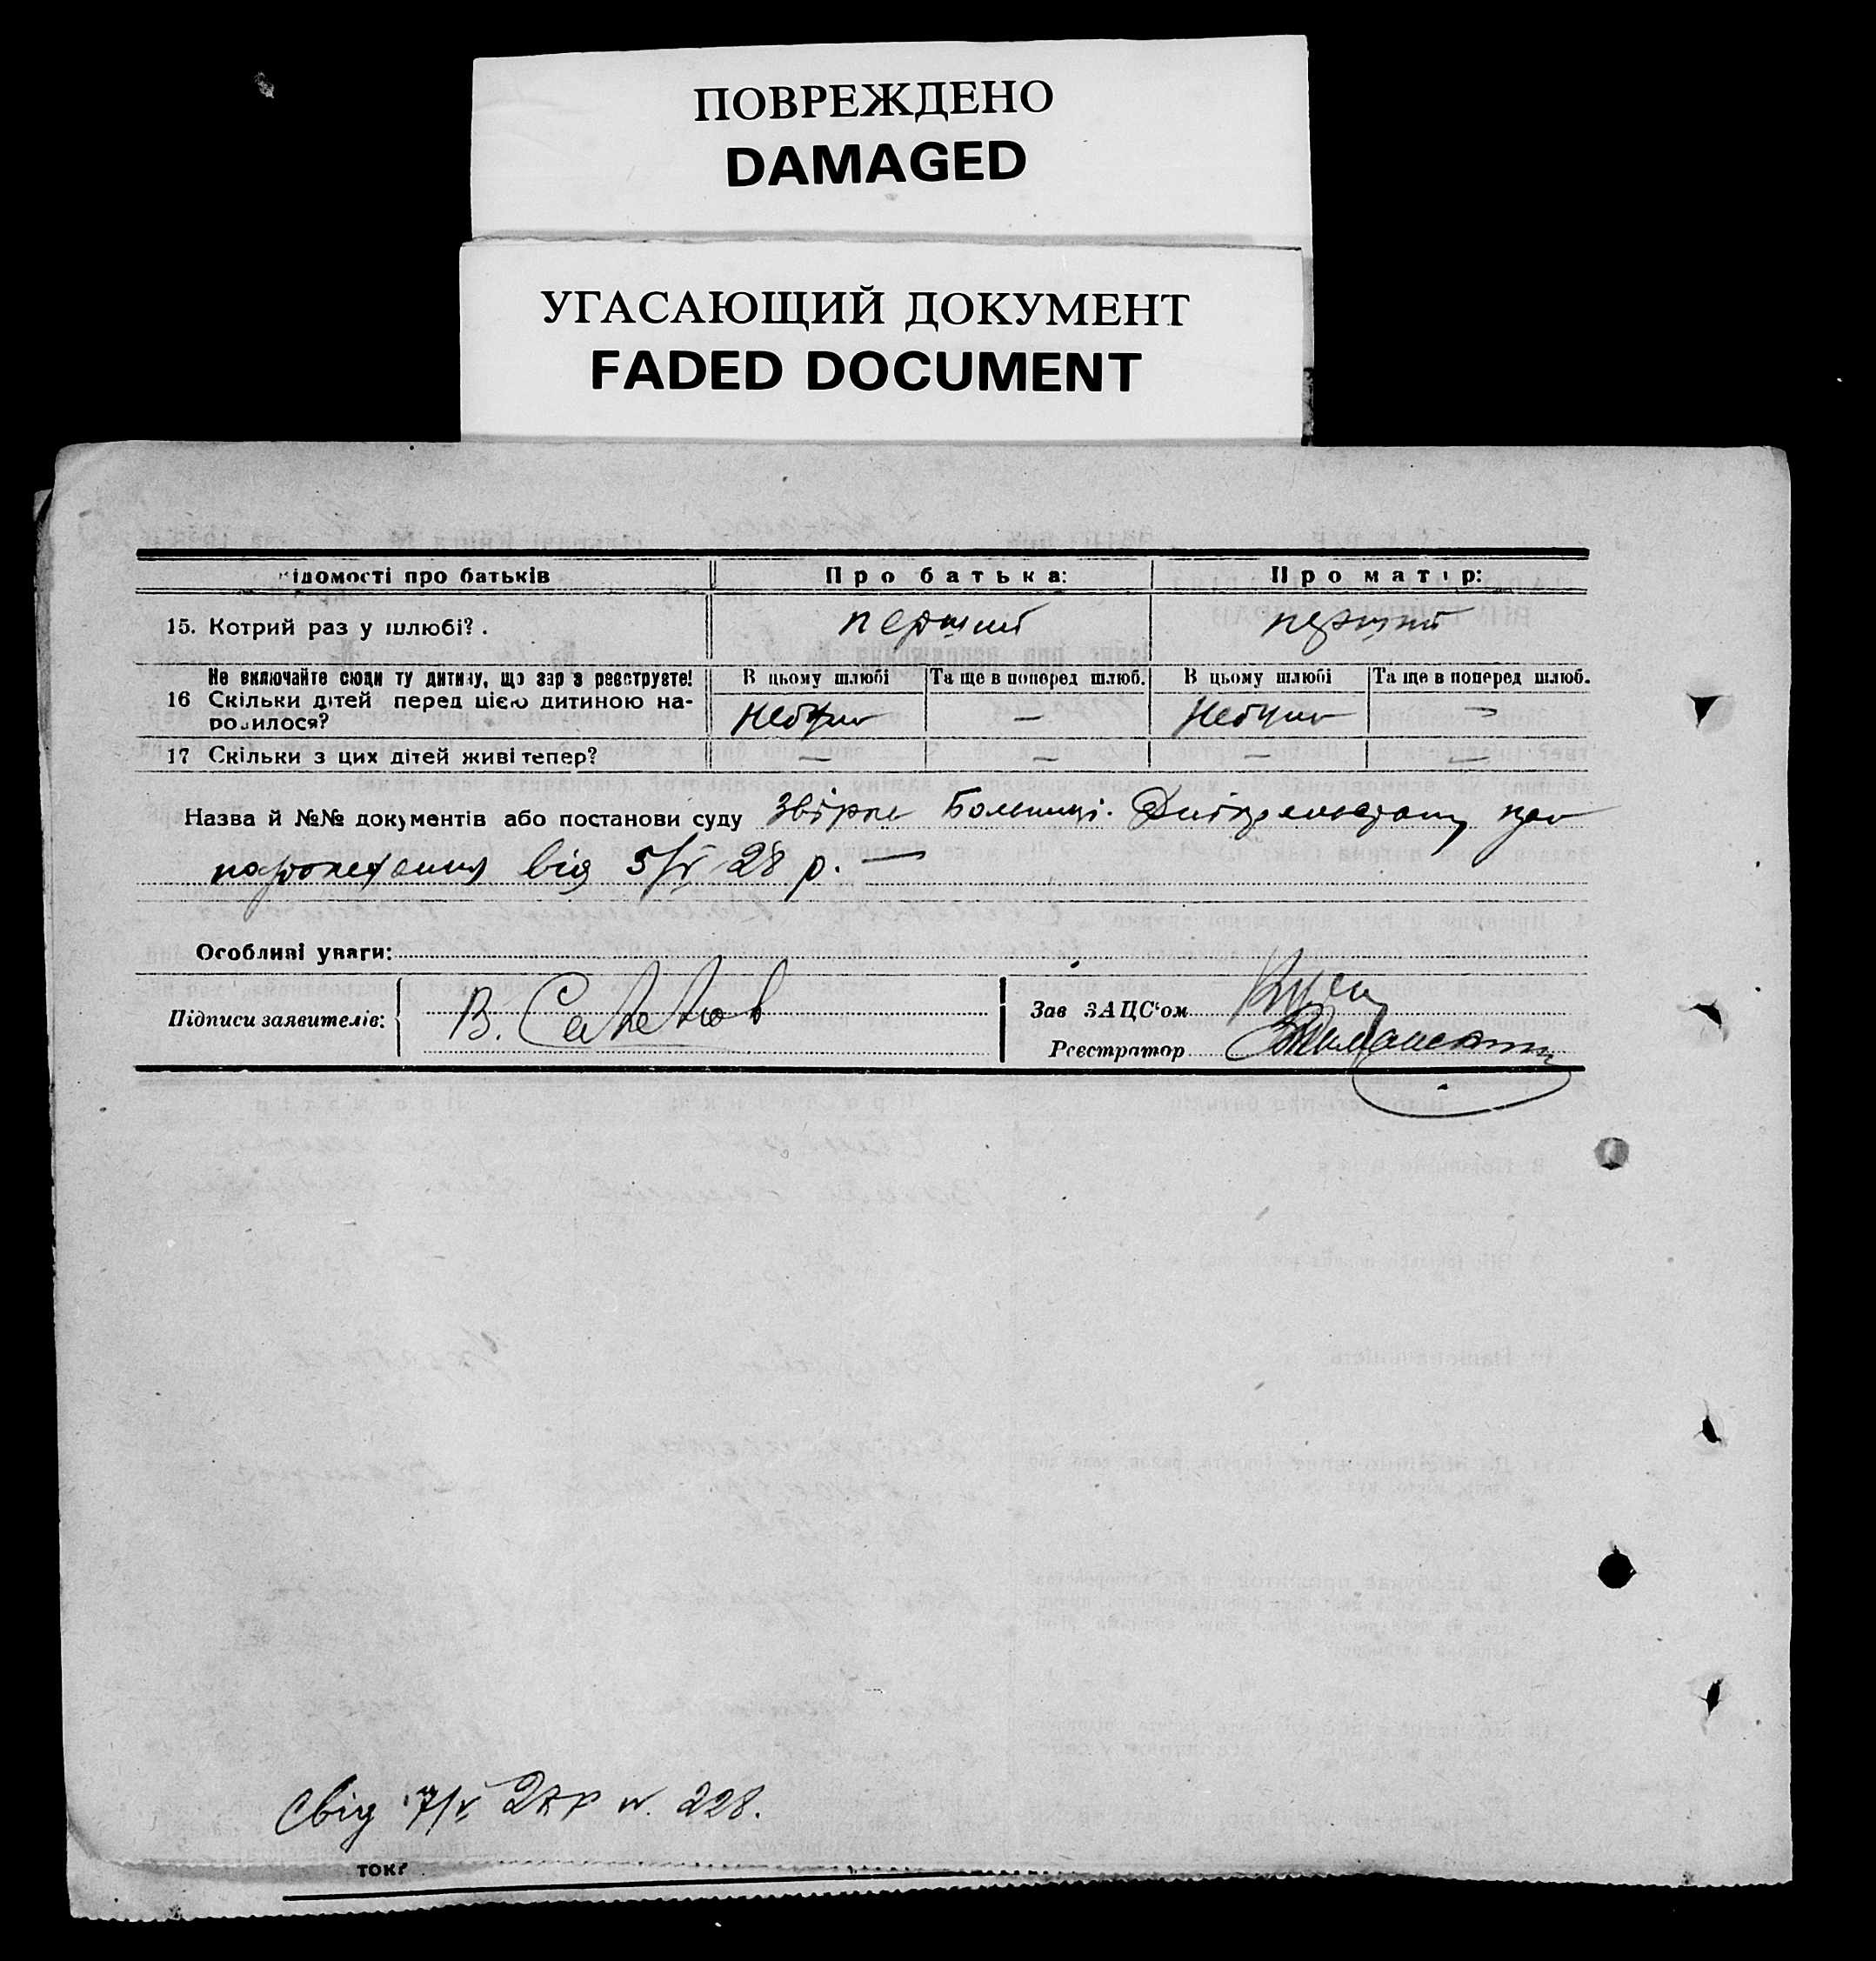 ПОВРЕЖДЕНО
DAMAGED
УГАСАЮЩИЙ ДОКУМЕНТ
FADED DOCUMENT
ідомості про батьків Про батька: Про матір:
15. Котрий раз у шлюбі?. перший перший
Не включайте сюди ту дитину, що зараз реєструєте! В цьому шлюбі Та ще в поперед шлюб. В цьому шлюбі Та ще в поперед шлюб.
16 Скільки дітей перед цією дитиною на-
родилося? Небуло — Небуло —
17 Скільки з цих дітей живі тепер? — — — —
Назва й №№ документів або постанови суду Больниці. про
народження від 5/V 28 р. —
Особливі уваги:
Підписи заявителів: В. Зав ЗАЦС'ом
Реєстратор
Свід 7/V 28 р N. 228.